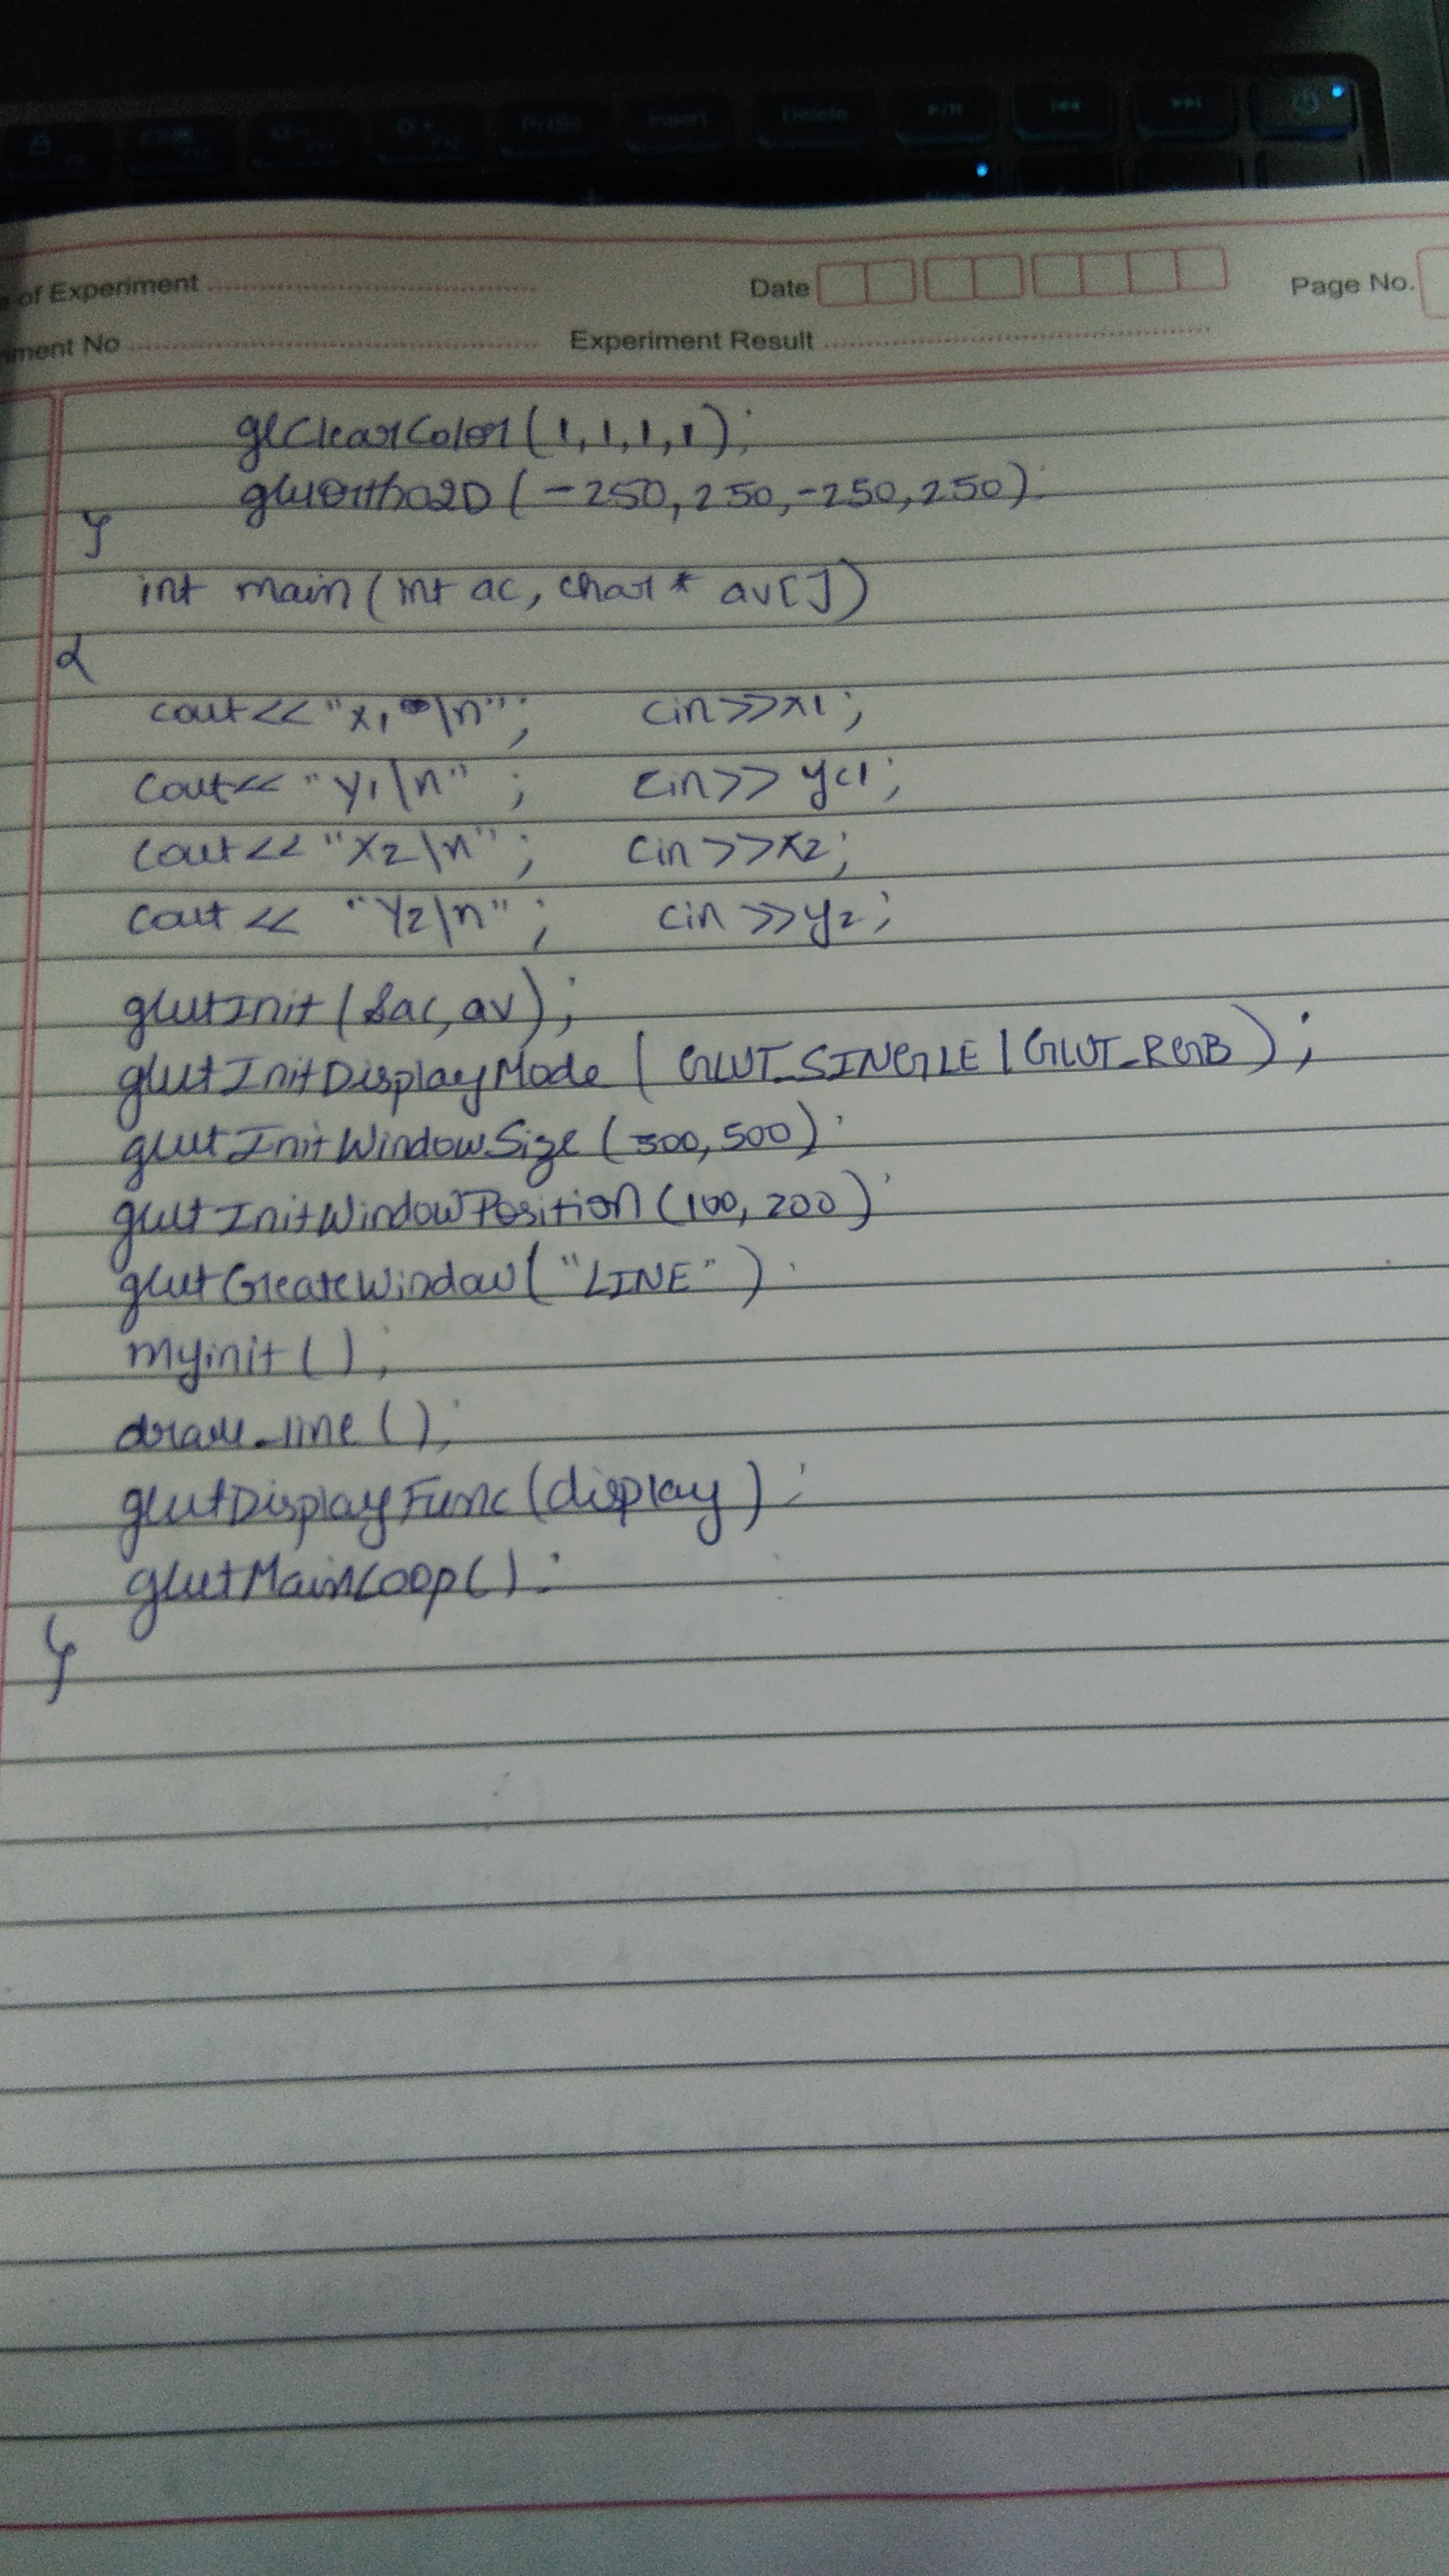 e of Experiment Date Page No.
iment No Experiment Result
glClearColor(1,1,1,1);
gluOrtho2D(-250,250,-250,250);
}
int main(int ac, char* av[])
{
cout<<"x1\n"; cin>>x1;
cout<<"y1\n"; cin>>yc1;
cout<<"x2\n"; cin>>x2;
cout<<"y2\n"; cin>>y2;
glutInit(&ac,av);
glutInitDisplayMode(GLUT_SINGLE|GLUT_RGB);
glutInitWindowSize(500,500);
glutInitWindowPosition(100,200);
glutCreateWindow("LINE");
myinit();
draw_line();
glutDisplayFunc(display);
glutMainLoop();
}